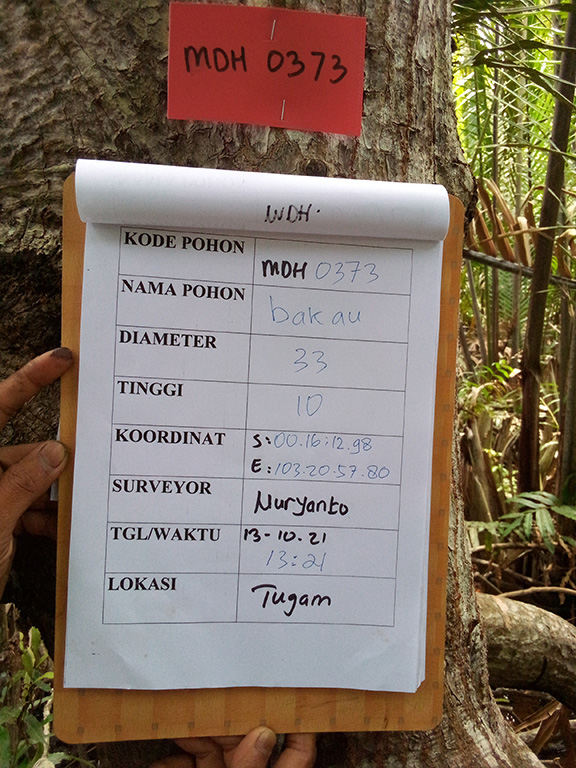 MDH 0373
MDH.
KODE POHON MDH 0373
NAMA POHON bakau
DIAMETER 33
TINGGI 10
KOORDINAT S: 00.16:12.98
E: 103.20.57.80
SURVEYOR Nuryanto
TGL/WAKTU 13-10.21
13:21
LOKASI Tugam